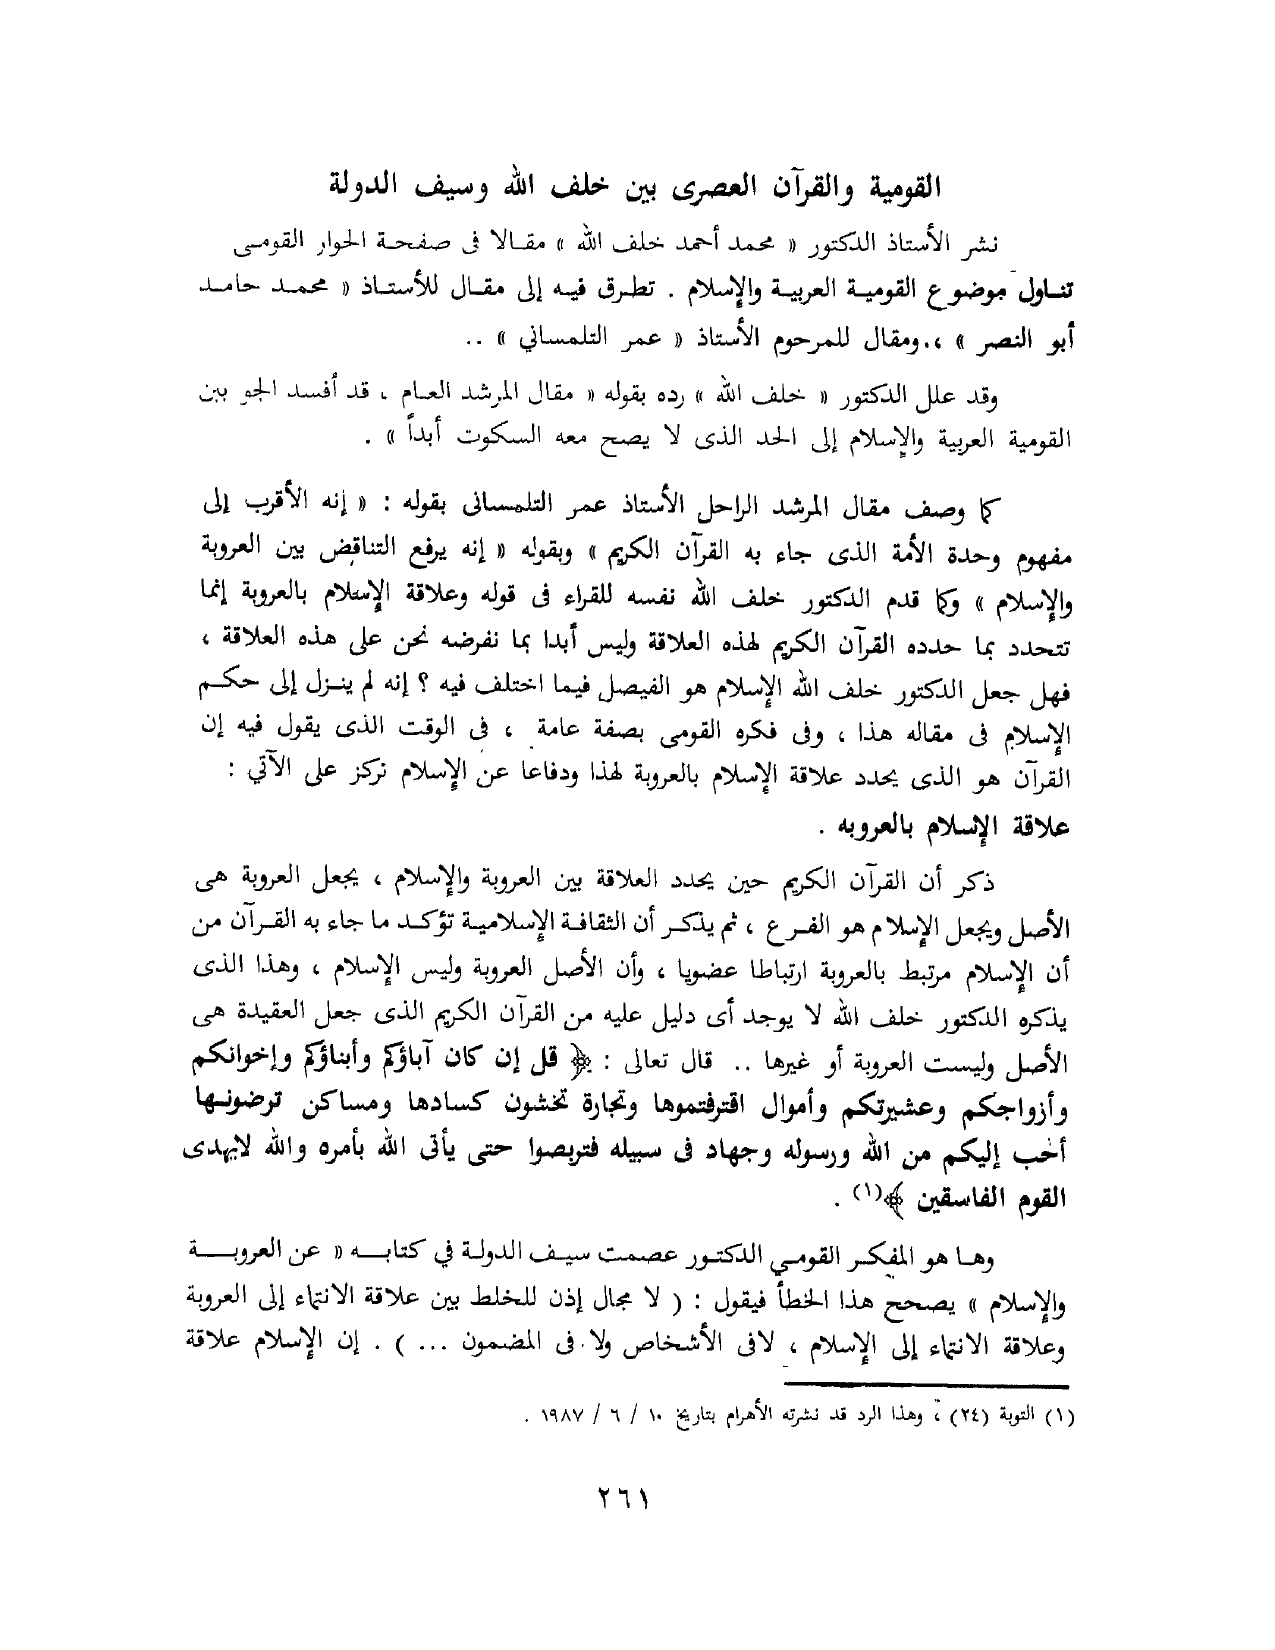 القومية والقرآن العصرى بين خلف الله وسيف الدولة
نشر الأستاذ الدكتور « محمد أحمد خلف الله » مقالا فى صفحة الحوار القومى
تناول موضوع القومية العربية والإسلام . تطرق فيه إلى مقال للأستاذ « محمد حامد
أبو النصر » ، ومقال للمرحوم الأستاذ « عمر التلمساني » ..
وقد علل الدكتور « خلف الله » رده بقوله « مقال المرشد العام ، قد أفسد الجو بين
القومية العربية والإسلام إلى الحد الذى لا يصح معه السكوت أبداً » .
كما وصف مقال المرشد الراحل الأستاذ عمر التلمسانى بقوله : « إنه الأقرب إلى
مفهوم وحدة الأمة الذى جاء به القرآن الكريم » وبقوله « إنه يرفع التناقض بين العروبة
والإسلام » وكما قدم الدكتور خلف الله نفسه للقراء فى قوله وعلاقة الإسلام بالعروبة إنما
تتحدد بما حدده القرآن الكريم لهذه العلاقة وليس أبدا بما نفرضه نحن على هذه العلاقة ،
فهل جعل الدكتور خلف الله الإسلام هو الفيصل فيما اختلف فيه ؟ إنه لم ينزل إلى حكم
الإسلام فى مقاله هذا ، وفى فكره القومى بصفة عامة ، فى الوقت الذى يقول فيه إن
القرآن هو الذى يحدد علاقة الإسلام بالعروبة لهذا ودفاعا عن الإسلام نركز على الآتي :
علاقة الإسلام بالعروبه .
ذكر أن القرآن الكريم حين يحدد العلاقة بين العروبة والإسلام ، يجعل العروبة هى
الأصل ويجعل الإسلام هو الفرع ، ثم يذكر أن الثقافة الإسلامية تؤكد ما جاء به القرآن من
أن الإسلام مرتبط بالعروبة ارتباطا عضويا ، وأن الأصل العروبة وليس الإسلام ، وهذا الذى
يذكره الدكتور خلف الله لا يوجد أى دليل عليه من القرآن الكريم الذى جعل العقيدة هى
الأصل وليست العروبة أو غيرها .. قال تعالى : ﴿ قل إن كان آباؤكم وأبناؤكم وإخوانكم
وأزواجكم وعشيرتكم وأموال اقترفتموها وتجارة تخشون كسادها ومساكن ترضونها
أحب إليكم من الله ورسوله وجهاد فى سبيله فتربصوا حتى يأتى الله بأمره والله لايهدى
القوم الفاسقين ﴾(١) .
وها هو المفكر القومي الدكتور عصمت سيف الدولة في كتابه « عن العروبة
والإسلام » يصحح هذا الخطأ فيقول : ( لا مجال إذن للخلط بين علاقة الانتماء إلى العروبة
وعلاقة الانتماء إلى الإسلام ، لافى الأشخاص ولا فى المضمون ... ) . إن الإسلام علاقة
(١) التوبة (٢٤) ، وهذا الرد قد نشرته الأهرام بتاريخ ١٠ / ٦ / ١٩٨٧ .
٢٦١